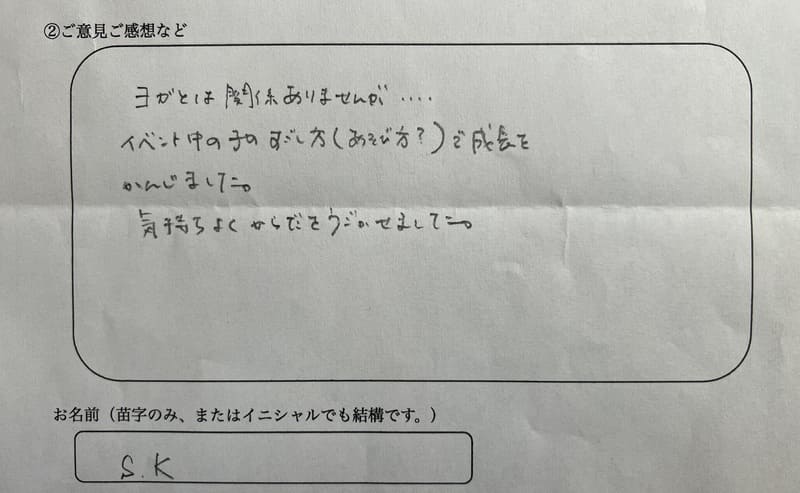 ②ご意見ご感想など
ヨガとは関係ありませんが....
イベント中の子のすごし方(あそび方?)で成長を
かんじました。
気持ちよくからだをうごかせました。
お名前（苗字のみ、またはイニシャルでも結構です。）
S.K